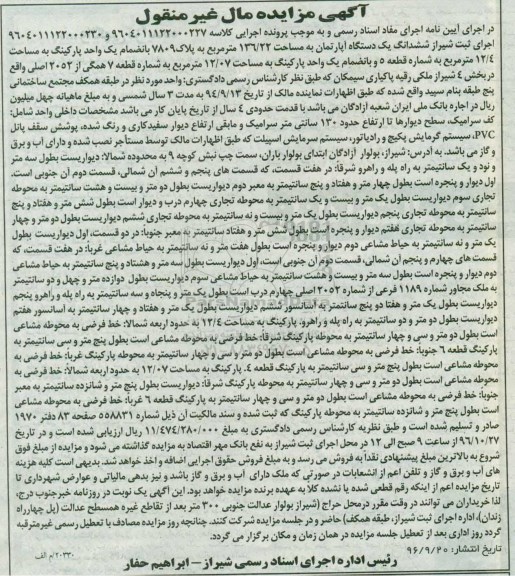 آگهی مزایده مال غیر منقول
در اجرای آیین نامه اجرای مفاد اسناد رسمی و به موجب پرونده اجرایی کلاسه ۹۶۰۴۰۱۱۱۲۲۰۰۰۲۲۷ و ۹۶۰۴۰۱۱۱۲۲۰۰۰۲۳۰
اجرای ثبت شیراز ششدانگ یک دستگاه آپارتمان به مساحت ۱۳۶/۲۲ مترمربع به پلاک ۷۸۰۹ بانضمام یک واحد پارکینگ به مساحت
۱۲/۴ مترمربع به شماره قطعه ۵ و بانضمام یک واحد پارکینگ به مساحت ۱۲/۰۷ مترمربع به شماره قطعه ۷ همگی از ۲۰۵۳ اصلی واقع
در بخش ۴ شیراز ملکی رقیه پاکیاری سیمکان که طبق نظر کارشناس رسمی دادگستری: واحد مورد نظر در طبقه همکف مجتمع ساختمانی
پنج طبقه بنام سپید واقع شده که طبق اظهارات نماینده مالک از تاریخ ۹۴/۹/۱۳ به مدت ۳ سال شمسی و به مبلغ ماهیانه چهل میلیون
ریال در اجاره بانک ملی ایران شعبه آزادگان می باشد با قدمت حدودی ۴ سال از تاریخ پایان کار می باشد مشخصات داخلی واحد شامل:
کف سرامیک، سطح دیوارها تا ارتفاع حدود ۱۳۰ سانتی متر سرامیک و مابقی ارتفاع دیوار سفیدکاری و رنگ شده، پوشش سقف پانل
PVC، سیستم گرمایش پکیج و رادیاتور، سیستم سرمایش اسپیلت که طبق اظهارات مالک توسط مستأجر نصب شده و دارای آب و برق
و گاز می باشد. به آدرس: شیراز، بولوار آزادگان ابتدای بولوار باران، سمت چپ نبش کوچه ۹ به محدوده شمالا: دیواریست بطول سه متر
و نود و یک سانتیمتر به راه پله و راهرو شرقاً: در هفت قسمت، که قسمت های پنجم و ششم آن شمالی، قسمت دوم آن جنوبی است.
اول دیوار و پنجره است بطول چهار متر و هفتاد و پنج سانتیمتر به معبر دوم دیواریست بطول دو متر و بیست و هشت سانتیمتر به محوطه
تجاری سوم دیواریست بطول یک متر و بیست و یک سانتیمتر به محوطه تجاری چهارم درب و دیوار است بطول شش متر و هفتاد و پنج
سانتیمتر به محوطه تجاری پنجم دیواریست بطول یک متر و بیست و نه سانتیمتر به محوطه تجاری ششم دیواریست بطول دو متر و چهار
سانتیمتر به محوطه تجاری هفتم دیوار و پنجره است بطول شش متر و هفتاد سانتیمتر به معبر جنوبا: در دو قسمت، اول دیواریست بطول
یک متر و نه سانتیمتر به حیاط مشاعی دوم دیوار و پنجره است بطول هفت متر و نه سانتیمتر به حیاط مشاعی غرباً: در هفت قسمت، که
قسمت های چهارم و پنجم آن شمالی، قسمت دوم آن جنوبی است، اول دیواریست بطول سه متر و هشتاد و پنج سانتیمتر به حیاط مشاعی
دوم دیوار و پنجره است بطول سه متر و بیست و هشت سانتیمتر به حیاط مشاعی سوم دیواریست بطول دوازده متر و چهل و دو سانتیمتر
به ملک مجاور شماره ۱۱۸۹ فرعی از شماره ۲۰۵۳ اصلی چهارم درب است بطول یک متر و پنجاه و سه سانتیمتر به راه پله و راهرو پنجم
دیواریست بطول یک متر و هفتاد دو پنج سانتیمتر به آسانسور ششم دیواریست بطول یک متر و هفتاد و چهار سانتیمتر به آسانسور هفتم
دیواریست بطول دو متر و دو سانتیمتر به راه پله و راهرو. پارکینگ به مساحت ۱۲/۴ به حدود اربعه شمالا: خط فرضی به محوطه مشاعی
است بطول دو متر و سی و چهار سانتیمتر به محوطه پارکینگ شرقاً: خط فرضی به محوطه مشاعی است بطول پنج متر و سی سانتیمتر به
پارکینگ قطعه ۶ جنوبا: خط فرضی به محوطه مشاعی است بطول دو متر و سی و چهار سانتیمتر به محوطه پارکینگ غرباً: خط فرضی به
محوطه مشاعی است بطول پنج متر و سی سانتیمتر به پارکینگ قطعه ۴. پارکینگ به مساحت ۱۲/۰۷ به حدود اربعه شمالاً: خط فرضی به
محوطه مشاعی است بطول دو متر و سی و چهار سانتیمتر به محوطه پارکینگ شرقاً: دیواریست بطول پنج متر و شانزده سانتیمتر به معبر
جنوبا: خط فرضی به محوطه مشاعی است بطول دو متر و سی و چهار سانتیمتر به محوطه پارکینگ غرباً: خط فرضی به محوطه مشاعی
است بطول پنج متر و شانزده سانتیمتر به محوطه پارکینگ که ثبت شده و سند مالکیت آن ذیل شماره ۵۵۸۸۳۱ صفحه ۸۳ دفتر ۱۹۷۰
صادر و تسلیم شده است و طبق نظریه کارشناس رسمی دادگستری به مبلغ ۱۱/۴۷۴/۲۸۰/۰۰۰ ریال ارزیابی شده است و در تاریخ
۹۶/۱۰/۲۷ از ساعت ۹ صبح الی ۱۲ در محل اجرای ثبت شیراز به نفع بانک مهر اقتصاد به مزایده گذاشته می شود و مزایده از مبلغ فوق
شروع به بالاترین مبلغ پیشنهادی نقداً به فروش می رسد و به مبلغ فروش حقوق اجرایی اضافه و اخذ خواهد شد. بدیهی است کلیه هزینه
های آب و برق و گاز و تلفن اعم از انشعابات در صورتی که ملک دارای آب و برق و گاز باشد و نیز بدهی مالیاتی و عوارض شهرداری تا
تاریخ مزایده اعم از اینکه رقم قطعی شده یا نشده کلا به عهده برنده مزایده خواهد بود. این آگهی یک نوبت در روزنامه خبرجنوب درج،
لذا خریداران می توانند در وقت مقرر در محل حراج (شیراز بولوار عدالت جنوبی ۳۰۰ متر بعد از تقاطع غیره همسطح عدالت (پل چهارراه
زندان)، اداره اجرای ثبت شیراز، طبقه همکف) حاضر و در جلسه مزایده شرکت کنند. چنانچه روز مزایده مصادف با تعطیل رسمی غیرمترقبه
گردد روز اداری بعد از تعطیل جلسه مزایده در همان زمان و مکان برگزار می گردد.
تاریخ انتشار: ۹۶/۹/۲۰
۲۰۳۳۰/م الف
رئیس اداره اجرای اسناد رسمی شیراز - ابراهیم حفار